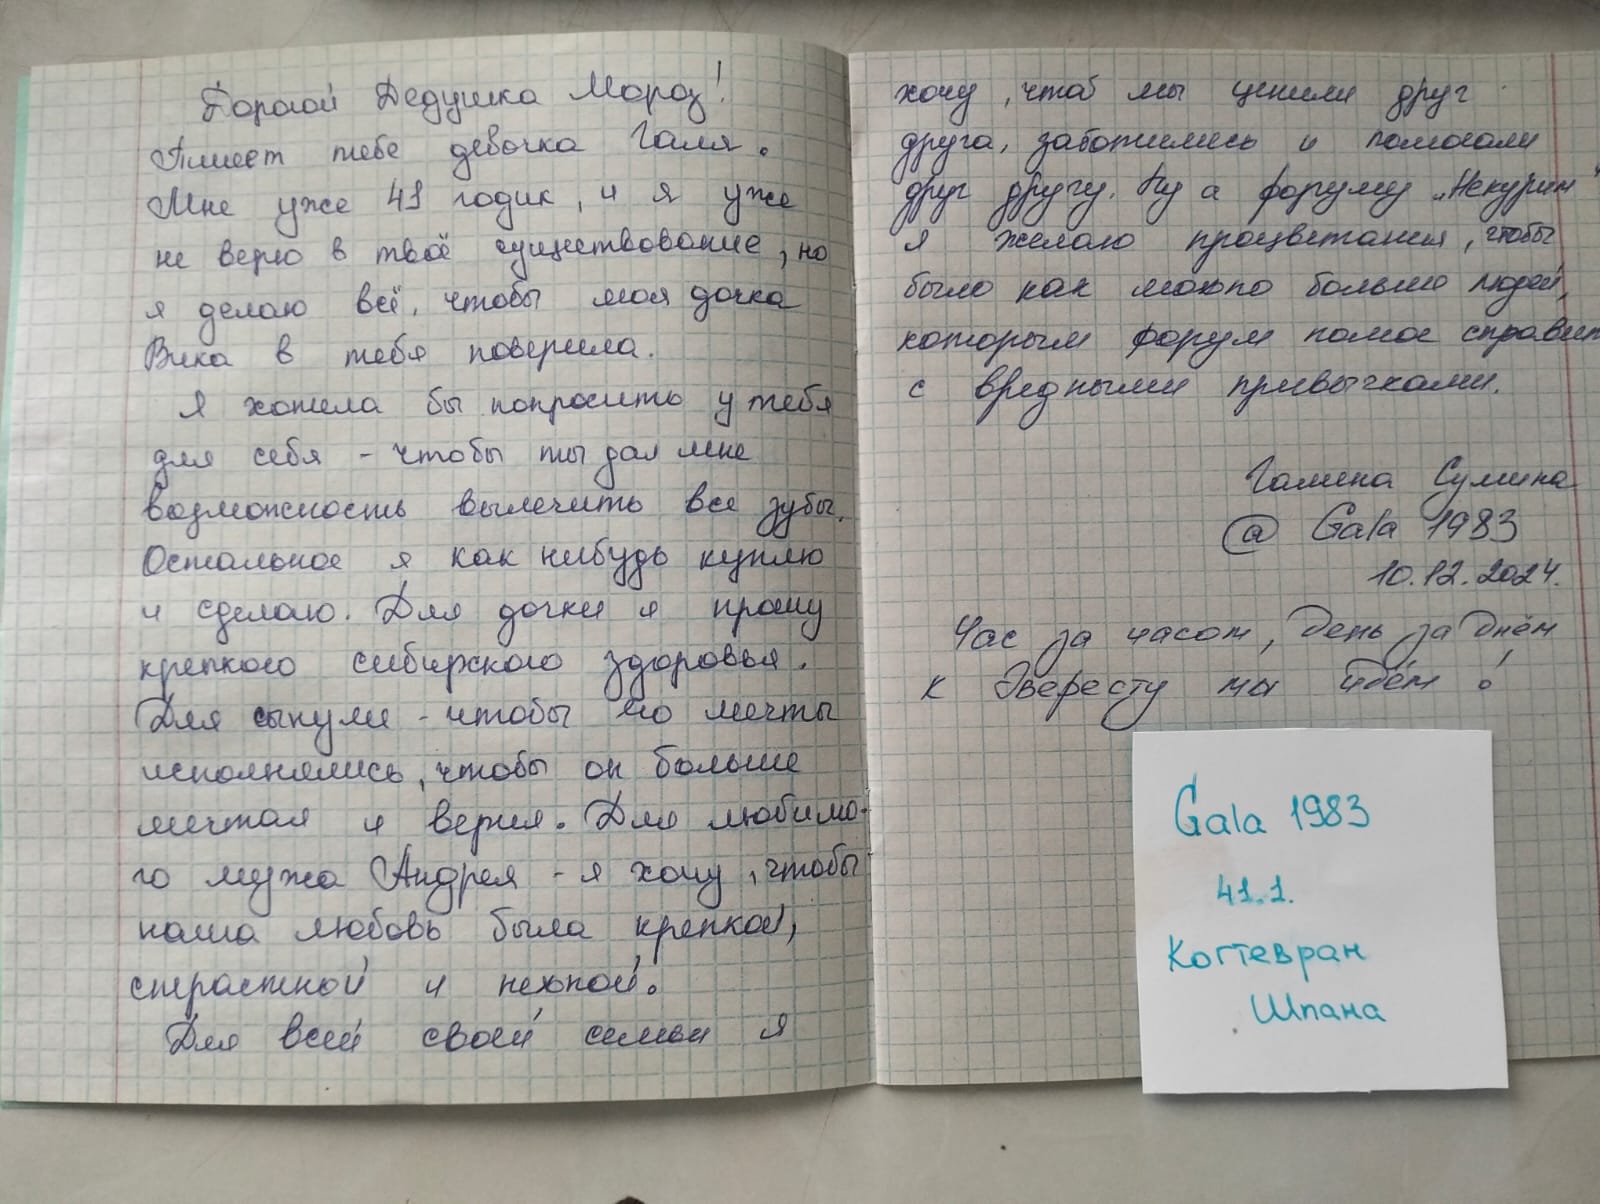 Дорогой Дедушка Мороз!
Пишет тебе девочка Галя.
Мне уже 41 годик, и я уже
не верю в твоё существование, но
я делаю всё, чтобы моя дочка
Вика в тебя поверила.
Я хотела бы попросить у тебя
для себя - чтобы ты дал мне
возможность вылечить все зубы.
Остальное я как нибудь куплю
и сделаю. Для дочки я прошу
крепкого сибирского здоровья.
Для сынули - чтобы его мечты
исполнялись, чтобы он больше
мечтал и верил. Для любимо-
го мужа Андрея - я хочу, чтобы
наша любовь была крепкой,
страстной и нежной.
Для всей своей семьи я
хочу, чтоб мы ценили друг
друга, заботились и помогали
друг другу. Ну а форуму „Некурим"
я желаю процветания, чтобы
было как можно больше людей,
которым форум помог справит
с вредными привычками.
Галина Сумина
@ Gala 1983
10.12.2024.
Час за часом, день за днём
к Эвересту мы идём!
Gala 1983
41.1.
Когтевран
Шпана